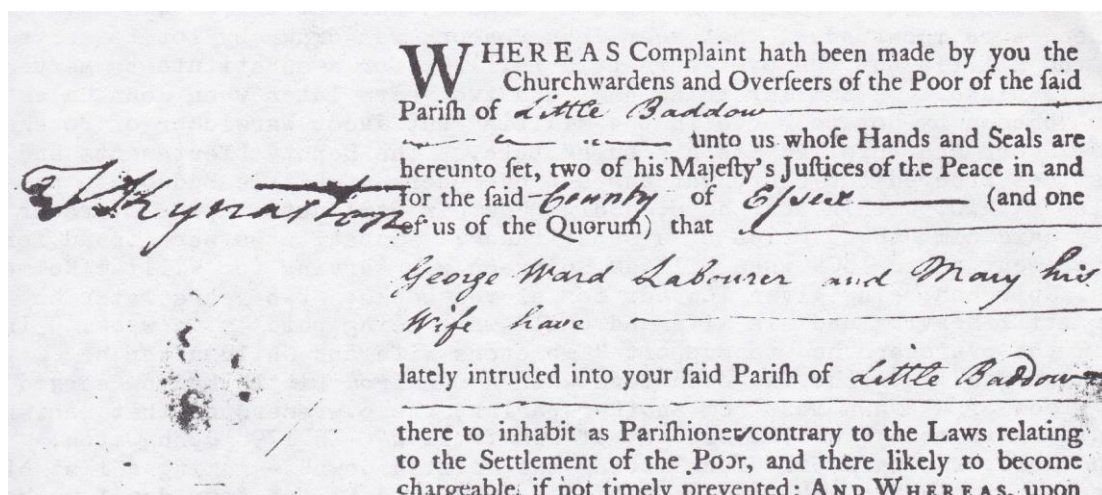 WHEREAS Complaint hath been made by you the
Churchwardens and Overseers of the Poor of the ſaid
Pariſh of Little Baddow
unto us whoſe Hands and Seals are
hereunto ſet, two of his Majeſty's Juſtices of the Peace in and
for the ſaid County of Eſsex (and one
of us of the Quorum) that
J Kynaston
George Ward Labourer and Mary his
Wife have
lately intruded into your ſaid Pariſh of Little Baddow
there to inhabit as Pariſhioners contrary to the Laws relating
to the Settlement of the Poor, and there likely to become
chargeable, if not timely prevented: AND WHEREAS, upon